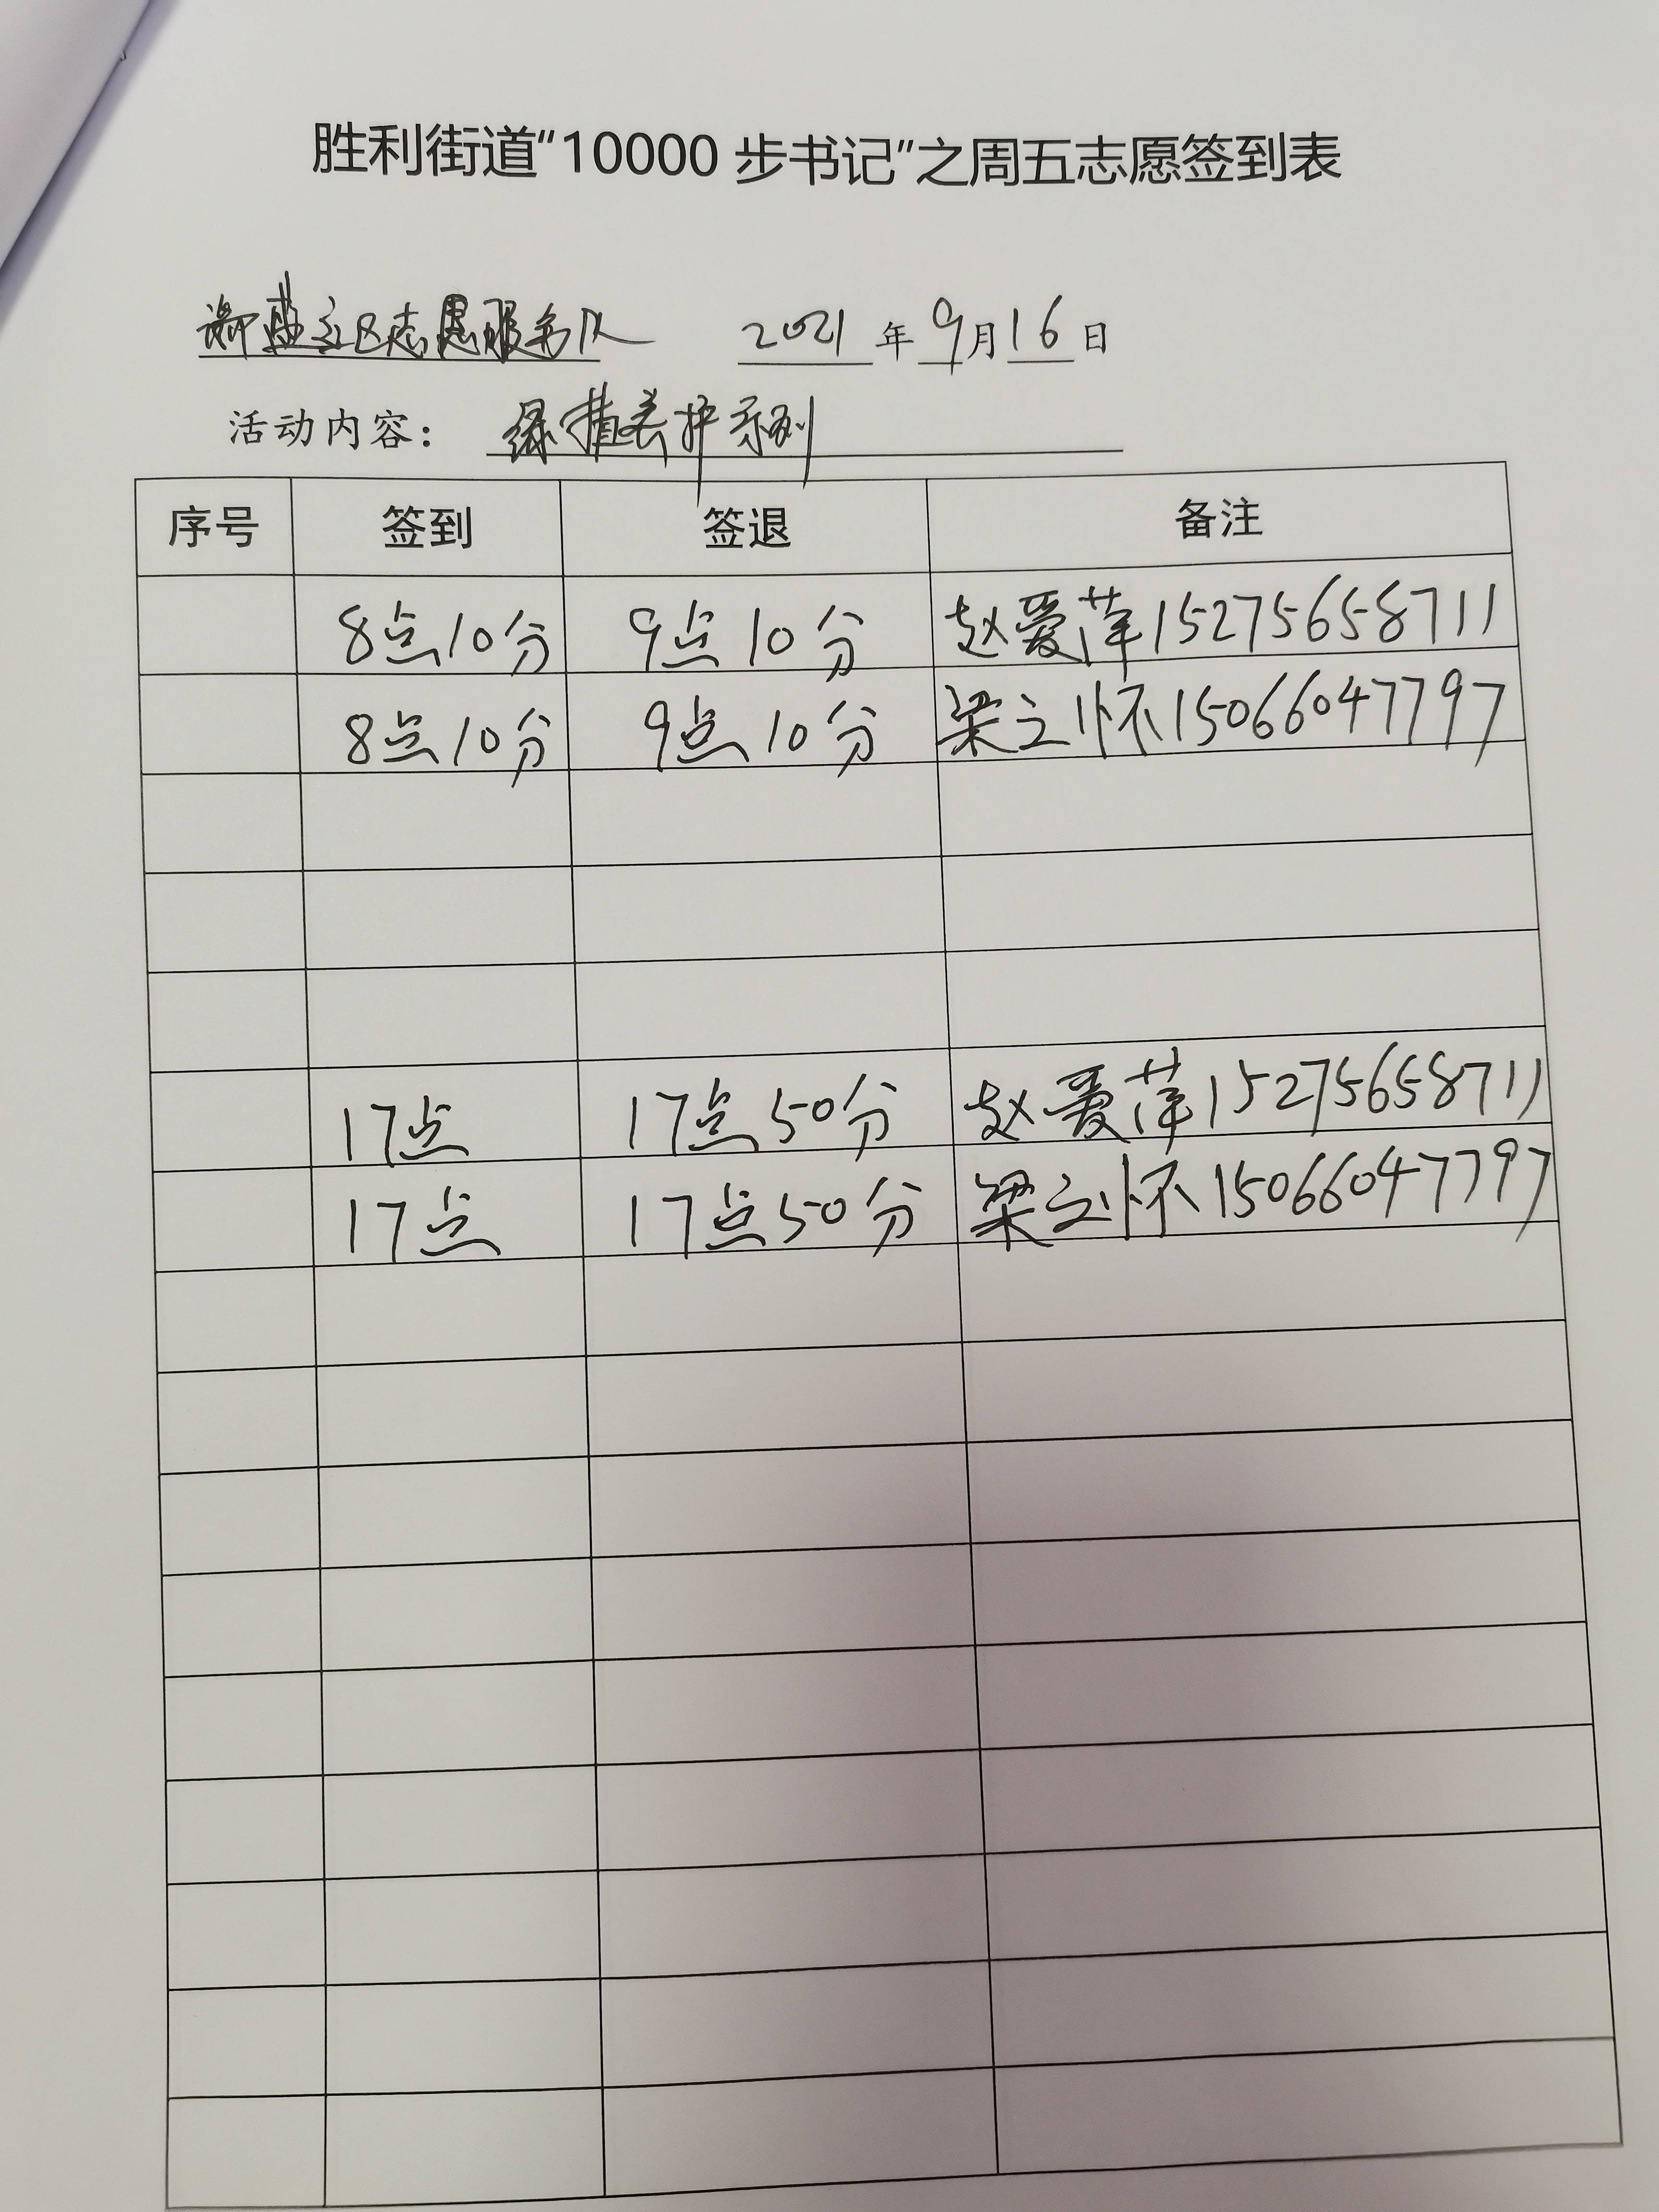 胜利街道“10000 步书记”之周五志愿签到表
社区志愿服务队 2021 年 9 月 16 日
活动内容： 绿植养护系列
序号 签到 签退 备注
8点10分 9点10分 赵爱萍15275658711
8点10分 9点10分 梁立怀15066047797
17点 17点50分 赵爱萍15275658711
17点 17点50分 梁立怀15066047797